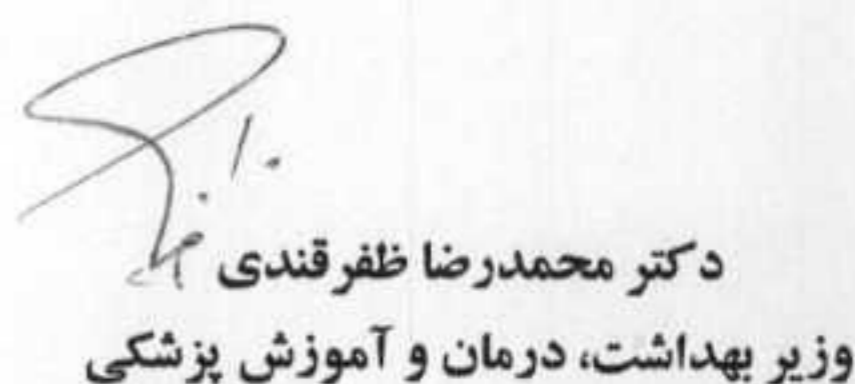 دکتر محمدرضا ظفرقندی
وزیر بهداشت، درمان و آموزش پزشکی